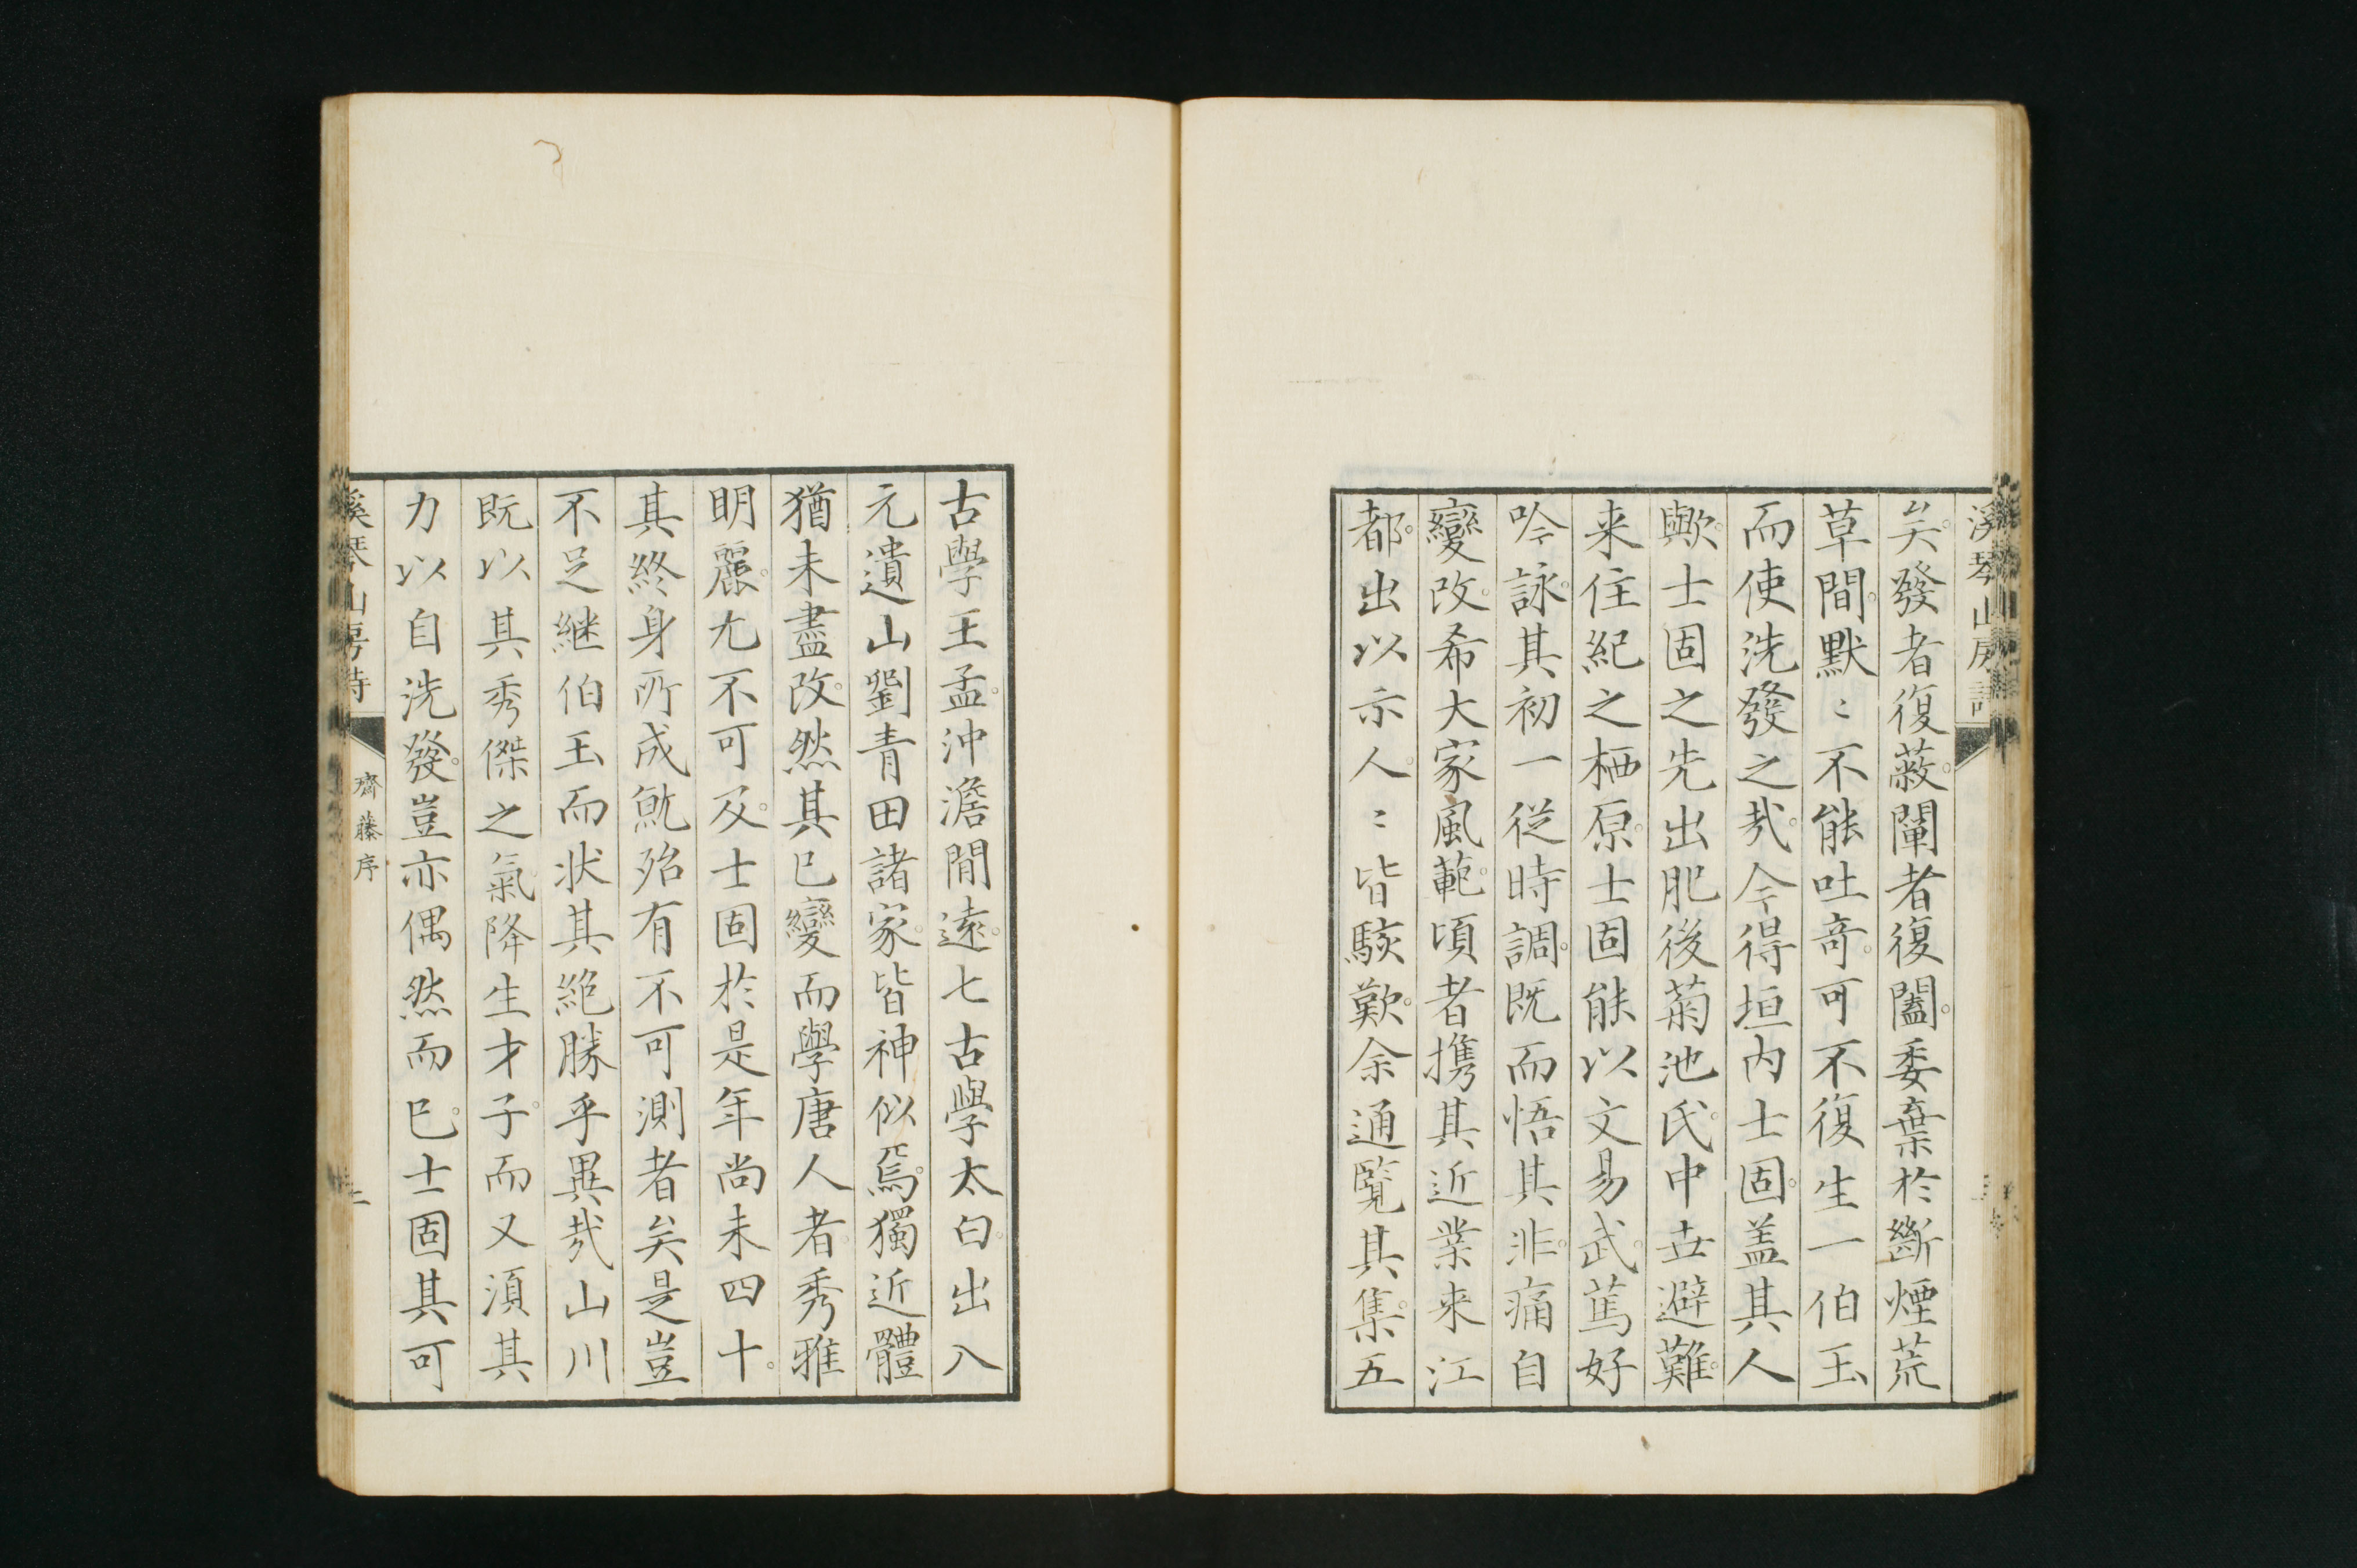 溪琴山房詩
矣。發者復蔽。闡者復闔。委棄於斷煙荒
草間。默〻不能吐奇。可不復生一伯玉
而使洗發之哉。今得垣内士固。盖其人
歟。士固之先出肥後菊池氏。中世避難。
来住紀之栖原。士固能以文易武。篤好
吟詠。其初一從時調。既而悟其非。痛自
變改。希大家風範。頃者携其近業来江
都。出以示人。人〻皆駭歎。余通覧其集。五
古學王孟。沖澹閒遠。七古學太白。出八
元遺山劉青田諸家。皆神似焉。獨近體
猶未盡改。然其已變而學唐人者。秀雅
明麗。尤不可及。士固於是年尚未四十。
其終身所成就殆有不可測者矣是豈
不足継伯玉而状其絶勝乎異哉山川
既以其秀傑之氣。降生才子。而又湏其
力以自洗發。豈亦偶然而已。士固其可
溪琴山房詩
齊藤序
二